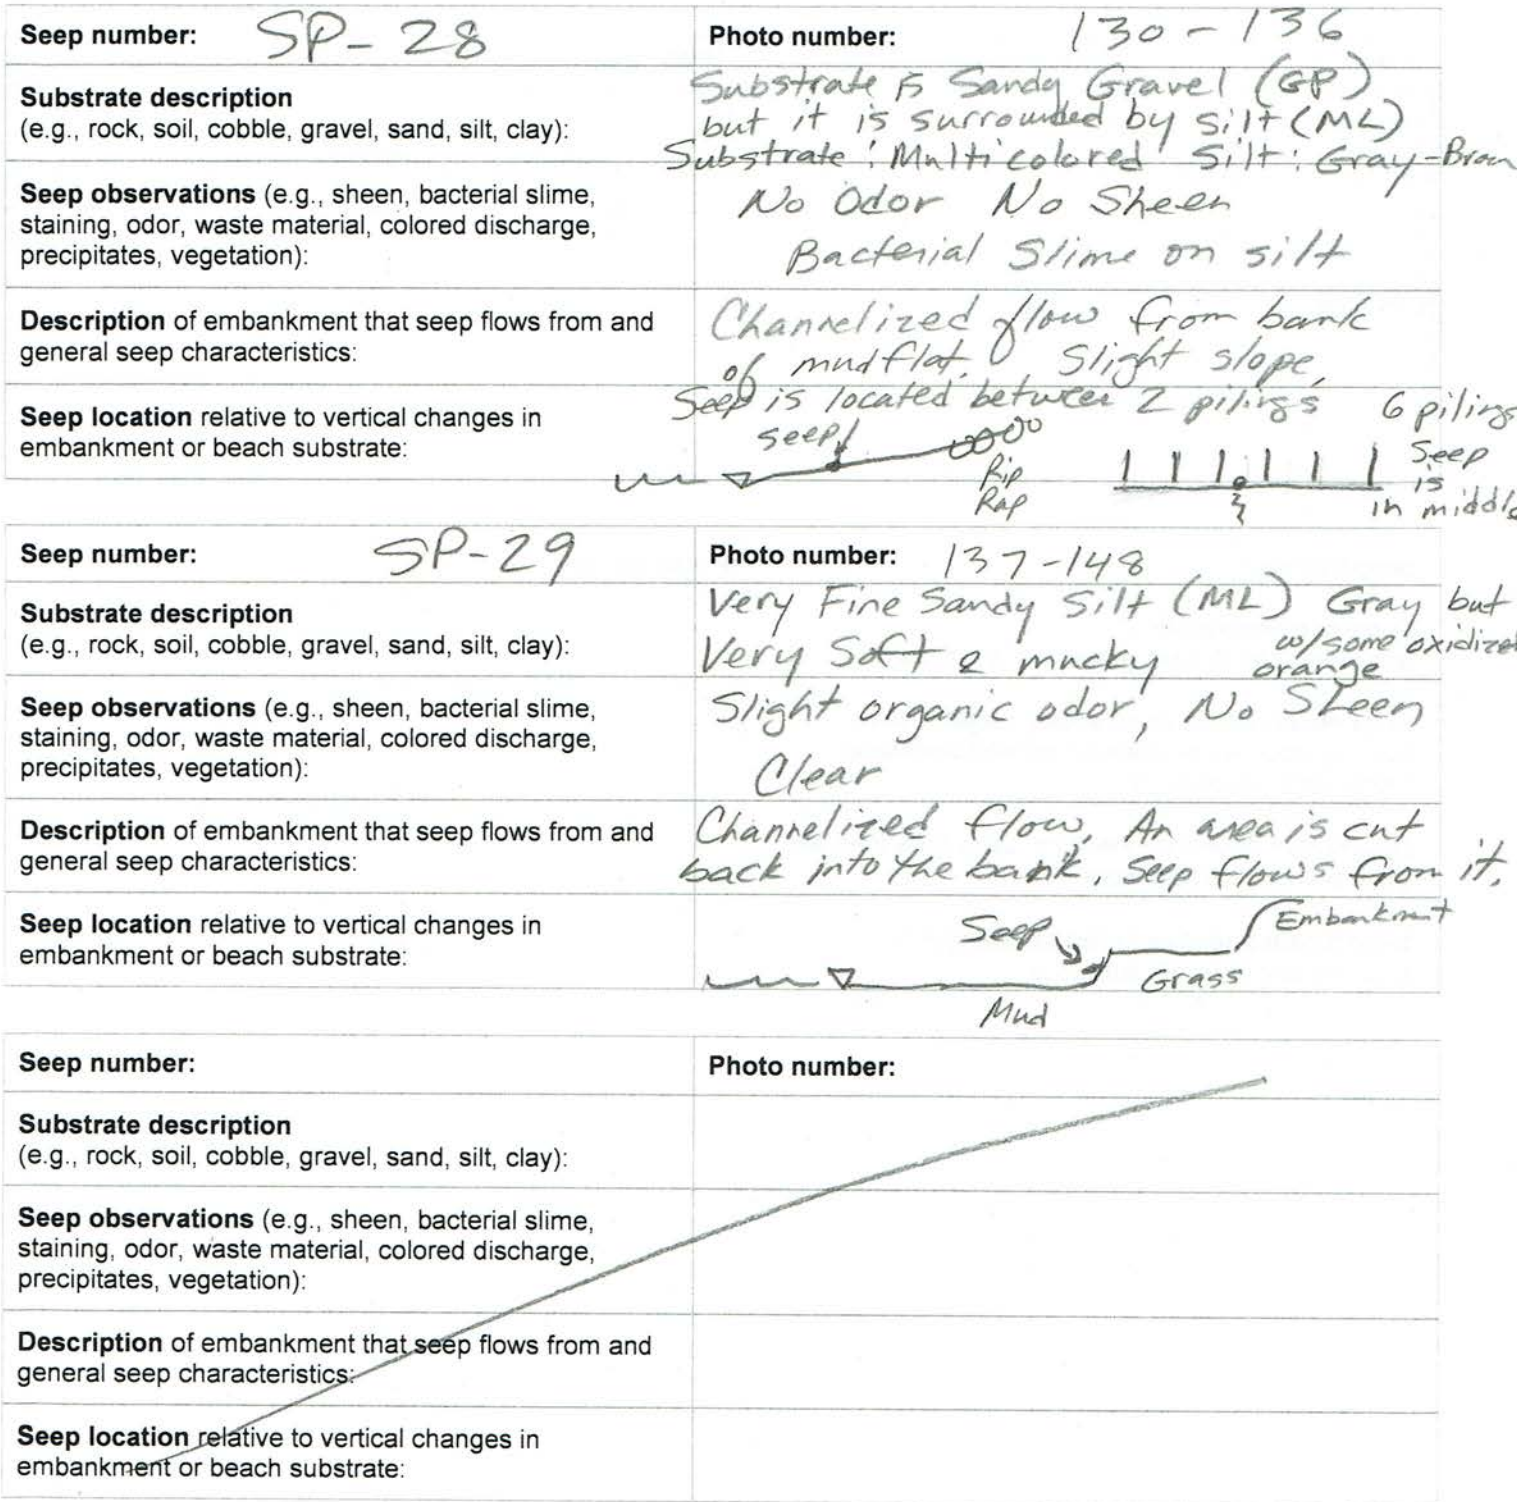 Seep number: SP-28
Photo number: 130-136
Substrate description
(e.g., rock, soil, cobble, gravel, sand, silt, clay):
Substrate is Sandy Gravel (GP)
but it is surrounded by silt (ML)
Substrate: Multicolored Silt: Gray-Brown
Seep observations (e.g., sheen, bacterial slime,
staining, odor, waste material, colored discharge,
precipitates, vegetation):
No Odor No Sheen
Bacterial Slime on silt
Description of embankment that seep flows from and
general seep characteristics:
Channelized flow from bank
of mudflat. Slight slope,
Seep location relative to vertical changes in
embankment or beach substrate:
Seep is located between 2 pilings
seep
Rip
Rap
6 pilings
Seep
is
in middle
Seep number: SP-29
Photo number: 137-148
Substrate description
(e.g., rock, soil, cobble, gravel, sand, silt, clay):
Very Fine Sandy Silt (ML) Gray but
Very Soft & mucky w/some oxidized
orange
Seep observations (e.g., sheen, bacterial slime,
staining, odor, waste material, colored discharge,
precipitates, vegetation):
Slight organic odor, No Sheen
Clear
Description of embankment that seep flows from and
general seep characteristics:
Channelized flow, An area is cut
back into the bank, Seep flows from it.
Seep location relative to vertical changes in
embankment or beach substrate:
Seep
Embankment
Grass
Mud
Seep number:
Photo number:
Substrate description
(e.g., rock, soil, cobble, gravel, sand, silt, clay):
Seep observations (e.g., sheen, bacterial slime,
staining, odor, waste material, colored discharge,
precipitates, vegetation):
Description of embankment that seep flows from and
general seep characteristics:
Seep location relative to vertical changes in
embankment or beach substrate: